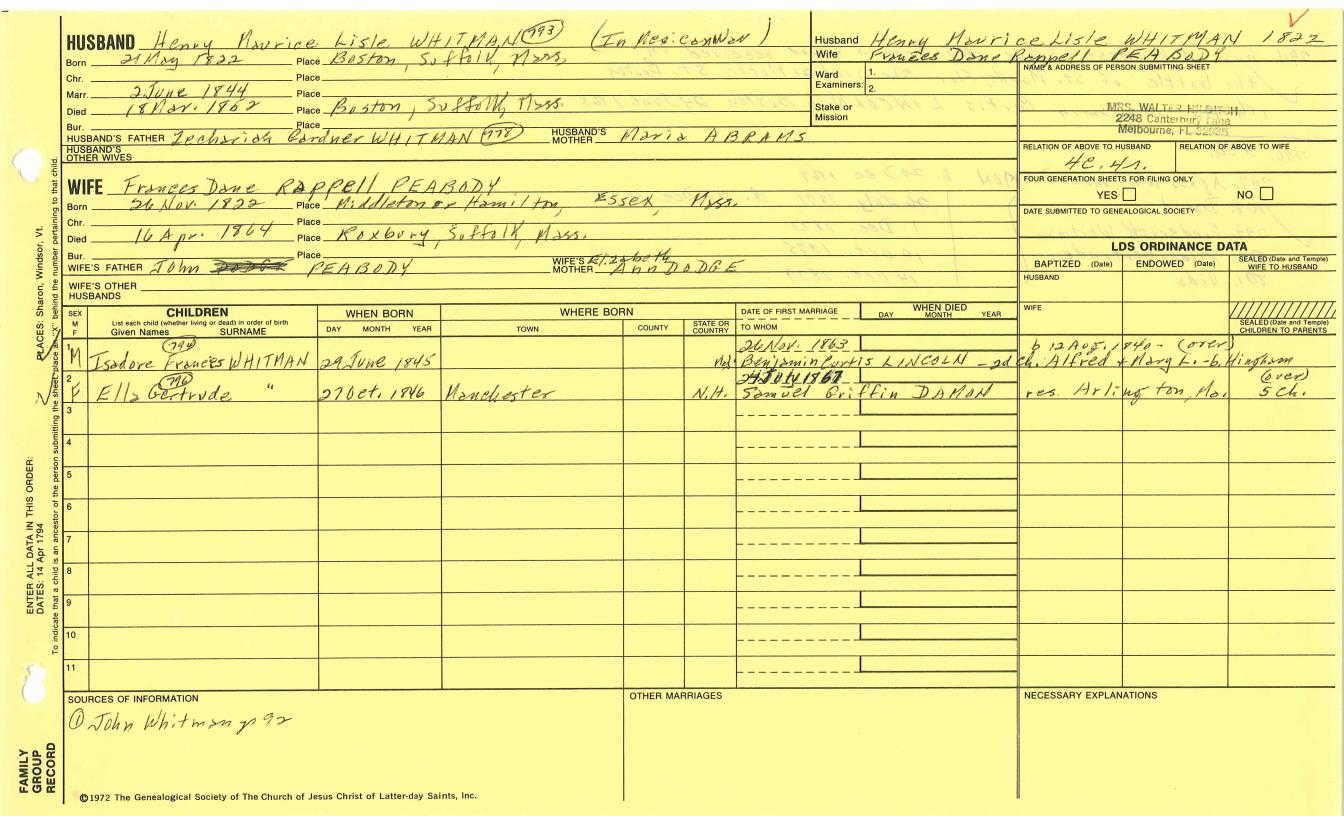 HUSBAND Henry Maurice Lisle WHITMAN 793 (In Mexican War)
Born 21 May 1822 Place Boston, Suffolk, Mass.
Chr. Place
Marr. 2 June 1844 Place
Died 18 Mar. 1862 Place Boston, Suffolk, Mass.
Bur. Place
HUSBAND'S FATHER Zechariah Gardner WHITMAN 778 HUSBAND'S MOTHER Maria ABRAMS
HUSBAND'S OTHER WIVES
WIFE Frances Dane Rappell PEABODY
Born 26 Nov. 1822 Place Middleton or Hamilton, Essex, Mass.
Chr. Place
Died 16 Apr. 1864 Place Roxbury, Suffolk, Mass.
Bur. Place
WIFE'S FATHER John PEABODY WIFE'S MOTHER Elizabeth Ann DODGE
WIFE'S OTHER HUSBANDS
Husband Henry Maurice Lisle WHITMAN 1822
Wife Frances Dane Rappell PEABODY
Ward Examiners: 1.
2.
Stake or Mission
NAME & ADDRESS OF PERSON SUBMITTING SHEET
MRS. WALTER
2248 Canterbury Lane
Melbourne, FL
RELATION OF ABOVE TO HUSBAND RELATION OF ABOVE TO WIFE
4c. 4r.
FOUR GENERATION SHEETS FOR FILING ONLY
YES NO
DATE SUBMITTED TO GENEALOGICAL SOCIETY
LDS ORDINANCE DATA
BAPTIZED (Date) ENDOWED (Date) SEALED (Date and Temple) WIFE TO HUSBAND
HUSBAND
WIFE
SEALED (Date and Temple) CHILDREN TO PARENTS
SEX M F
CHILDREN
List each child (whether living or dead) in order of birth
Given Names SURNAME
WHEN BORN
DAY MONTH YEAR
WHERE BORN
TOWN COUNTY STATE OR COUNTRY
DATE OF FIRST MARRIAGE
TO WHOM
WHEN DIED
DAY MONTH YEAR
1 794 26 Nov. 1863 b 12 Aug. 1840- (over)
M Isadore Frances WHITMAN 29 June 1845 Benjamin Curtis LINCOLN - 2d ch. Alfred + Mary L. - b. Hingham
2 796 24 July 1867 (over)
F Ella Gertrude " 27 Oct. 1846 Manchester N.H. Samuel Griffin DAMON res. Arlington, Ma. 5 ch.
3
4
5
6
7
8
9
10
11
SOURCES OF INFORMATION
① John Whitman p 92
OTHER MARRIAGES
NECESSARY EXPLANATIONS
©1972 The Genealogical Society of The Church of Jesus Christ of Latter-day Saints, Inc.
FAMILY GROUP RECORD
ENTER ALL DATA IN THIS ORDER:
DATES: 14 Apr 1794
PLACES: Sharon, Windsor, Vt.
To indicate that a child is an ancestor of the person submitting the sheet, place an "X" behind the number pertaining to that child.